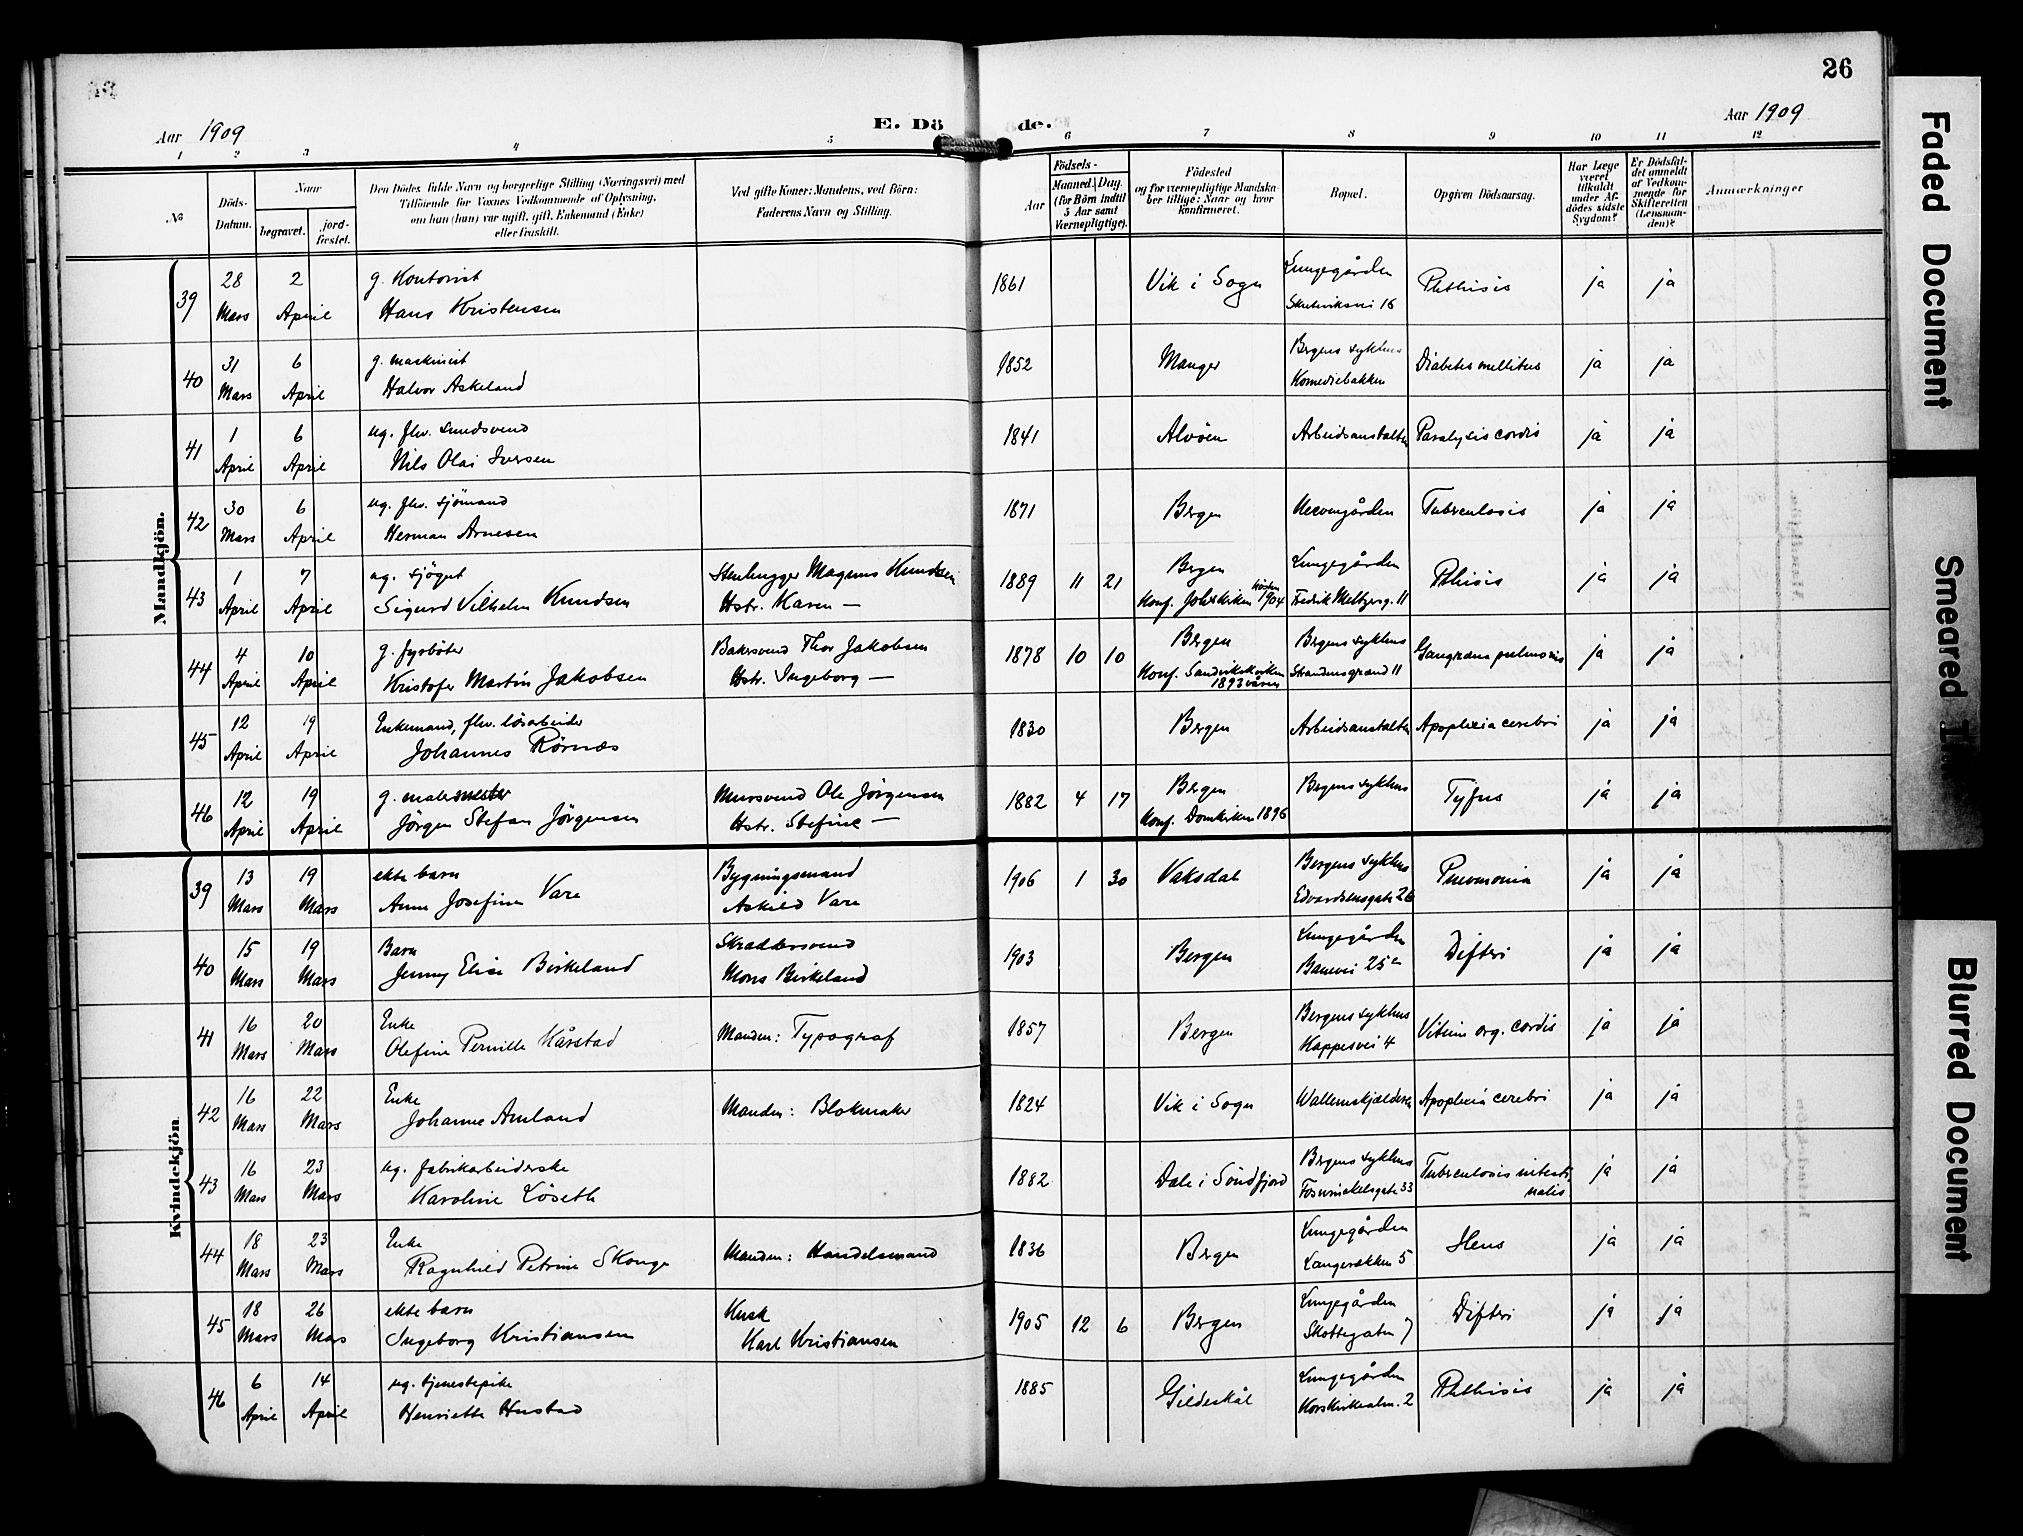 26
Aar 1909
E. Dö de.
Aar 1909
1 2 3 4 5 6 7 8 9 10 11 12
№
Döds-
Datum.
Naar
begravet.
jord-
fæstet.
Den Dödes fulde Navn og borgerlige Stilling (Næringsvei) med
Tilföiende for Voxnes Vedkommende af Oplysning,
om han (hun) var ugift, gift, Enkemand (Enke)
eller fraskilt.
Ved gifte Koner: Mandens, ved Börn:
Faderens Navn og Stilling.
Födsels-
Aar
Maaned. Dag.
(for Börn indtil
5 Aar samt
Værnepligtige).
Födested
og for værnepligtige Mandska-
ber tillige: Naar og hvor
konfirmeret.
Bopæl.
Opgiven Dödsaarsag.
Har Læge
været
tilkaldt
under Af-
dödes sidste
Sygdom?
Er Dödsfal-
det anmeldt
af Vedkom-
mende for
Skifteretten
(Lensman-
den)?
Anmærkninger
Mandkjön.
39 28 Mars 2 April g. Kontorist
Hans Kristensen 1861 Vik i Sogn Lungegården
Skuteviksvei 16 Phthisis ja ja
40 31 Mars 6 April g. maskinist
Halvor Askeland 1852 Manger Bergens sykhus
Komediebakken Diabetes mellitus ja ja
41 1 April 6 April ug. fhv. smedsvend
Nils Olai Iversen 1841 Alvöen Arbeidsanstalten Paralysis cordis ja ja
42 30 Mars 6 April ug. fhv. sjömand
Herman Arnesen 1871 Bergen Tuberculosis ja ja
43 1 April 7 April ug. sjögut
Sigurd Vilhelm Knudsen Stenhugger Magnus Knudsen
Hstr. Karen — 1889 11 21 Bergen
Konf. Johskirken hösten 1904 Lungegården
Fredrik Meltzersg. 11 Phthisis ja ja
44 4 April 10 April g. fyrböter
Kristofer Martin Jakobsen Bakersvend Thor Jakobsen
Hstr. Ingeborg — 1878 10 10 Bergen
Konf. Sandvikskirken
1893 våren Bergens sykhus
Strandensgrand 11 Gangræna pulmonis ja ja
45 12 April 19 April Enkemand, fhv. lösarbeider
Johannes Rörnæs 1830 Bergen Arbeidsanstalten Apoplexia cerebri ja ja
46 12 April 19 April g. malermester
Jörgen Stefan Jörgensen Mursvend Ole Jörgensen
Hstr. Stefine — 1882 4 17 Bergen
Konf. Domkirken 1896 Bergens sykhus Tyfus ja ja
Kvindekjön
39 13 Mars 19 Mars ekte barn
Anna Josefine Vare Bygningsmand
Askild Vare 1906 1 30 Vaksdal Bergens sykhus
Edvardsensgate 26 Pneumonia ja ja
40 15 Mars 19 Mars Barn
Jenny Elise Birkeland Skræddersvend
Mons Birkeland 1903 Bergen Lungegården
Banevei 25 Difteri ja ja
41 16 Mars 20 Mars Enke
Olefine Pernille Kårstad Manden: Typograf 1857 Bergen Bergens sykhus
Kappesvei 4 Vitium org. cordis ja ja
42 16 Mars 22 Mars Enke
Johanne Amland Manden: Blokmaker 1824 Vik i Sogn Wallemskjælderen Apoplexia cerebri ja ja
43 16 Mars 23 Mars ug. fabrikarbeiderske
Karoline Löseth 1882 Dale i Söndfjord Bergens sykhus
Fosswinckelsgate 33 Tuberculosis intesti-
nalis ja ja
44 18 Mars 23 Mars Enke
Ragnhild Petrine Skonge Manden: Handelsmand 1836 Bergen Lungegården
Langerækken 5 Ileus ja ja
45 18 Mars 26 Mars ekte barn
Ingeborg Kristiansen Kusk
Karl Kristiansen 1905 12 6 Bergen Lungegården
Skottegaten 7 Difteri ja ja
46 6 April 14 April ug. tjenestepike
Henriette Hustad 1885 Gildeskål Lungegården
Korskirkealm. 2 Phthisis ja ja
Faded Document
Smeared
Blurred Document